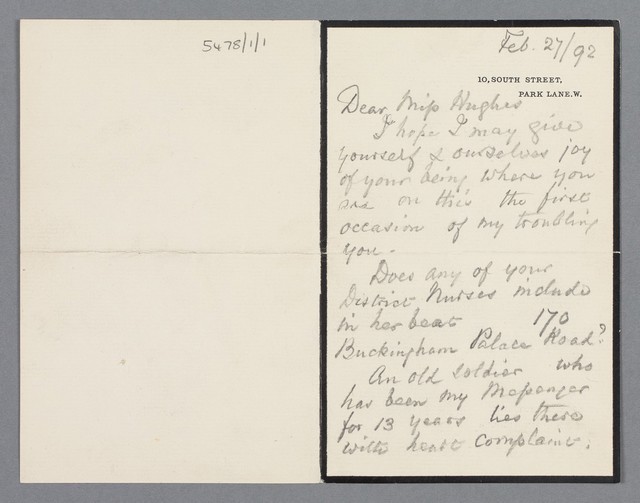 5478/1/1
Feb. 27/92
10, SOUTH STREET,
PARK LANE. W.
Dear Miss Hughes
I hope I may give
yourself & ourselves joy
of your being where you
are on this the first
occasion of my troubling
you -
Does any of your
District Nurses include
in her beat 170
Buckingham Palace Road?
An old soldier who
has been my Messenger
for 13 years lies there
with heart complaint.